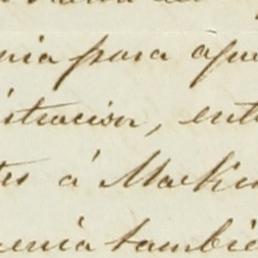 nia para aque
istracion, ent
tes á Mackin
enia tambie